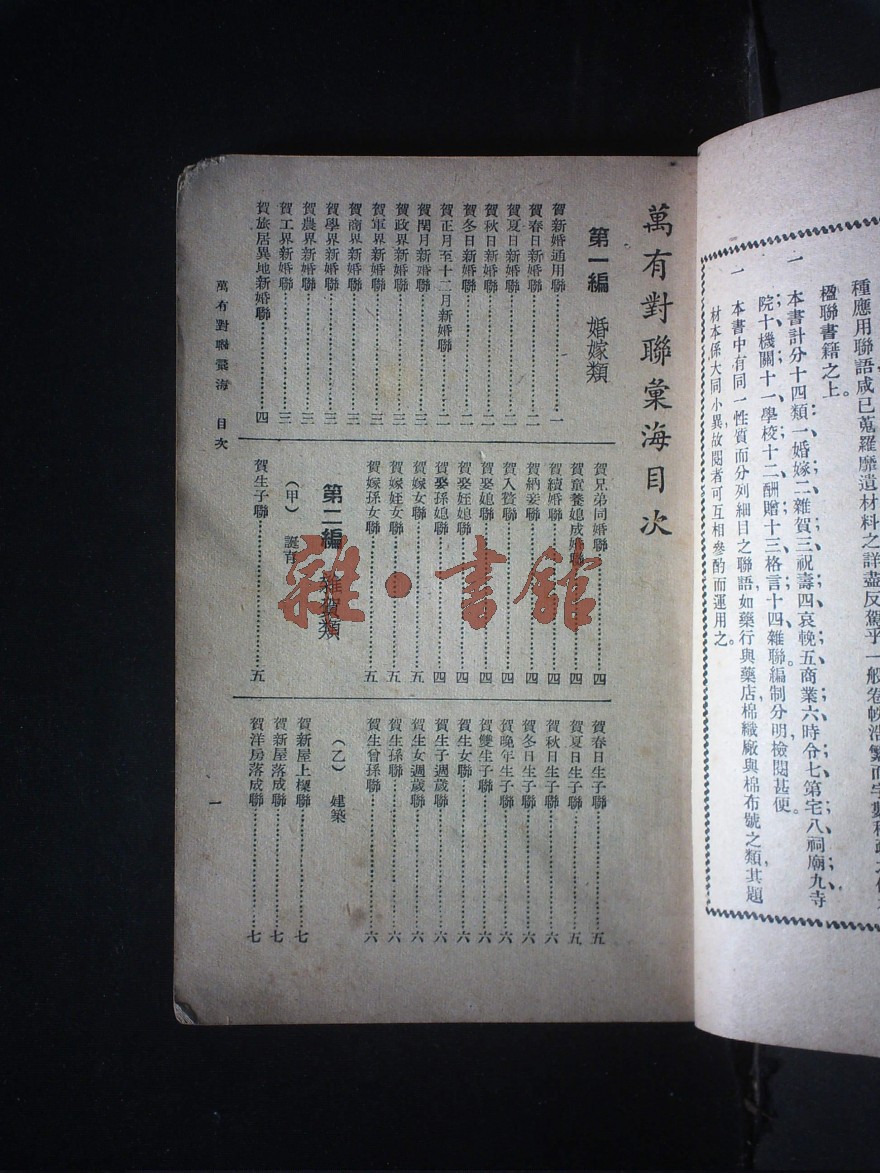 種應用聯語咸已蒐羅靡遺材料之詳盡反駕乎一般卷帙浩繁而字數
楹聯書籍之上。
一 本書計分十四類一婚嫁、二雜賀、三祝壽、四哀輓、五商業、六時令、七第宅、八祠廟、九寺
院、十機關、十一學校、十二酬贈、十三格言、十四雜聯、編制分明，檢閱甚便。
一 本書中有同一性質而分列細目之聯語，如藥行與藥店，棉織廠與棉布號之類，其題
材本係大同小異，故閱者可互相參酌而運用之。
萬有對聯彙海目次
第一編 婚嫁類
賀新婚通用聯……一
賀春日新婚聯……二
賀夏日新婚聯……二
賀秋日新婚聯……二
賀冬日新婚聯……二
賀正月至十二月新婚聯……二
賀閏月新婚聯……三
賀政界新婚聯……三
賀軍界新婚聯……三
賀商界新婚聯……三
賀學界新婚聯……三
賀農界新婚聯……三
賀工界新婚聯……三
賀旅居異地新婚聯……四
賀兄弟同婚聯……四
賀童養媳成婚聯……四
賀續婚聯……四
賀納妾聯……四
賀入贅聯……四
賀娶媳聯……四
賀娶姪媳聯……四
賀娶孫媳聯……四
賀嫁女聯……五
賀嫁姪女聯……五
賀嫁孫女聯……五
第二編 雜賀類
（甲） 誕育
賀生子聯……五
賀春日生子聯……五
賀夏日生子聯……五
賀秋日生子聯……六
賀冬日生子聯……六
賀晚年生子聯……六
賀雙生子聯……六
賀生女聯……六
賀生子週歲聯……六
賀生女週歲聯……六
賀生孫聯……六
賀生曾孫聯……六
（乙） 建築
賀新屋上樑聯……七
賀新屋落成聯……七
賀洋房落成聯……七
萬有對聯彙海 目次
一
雜·書館